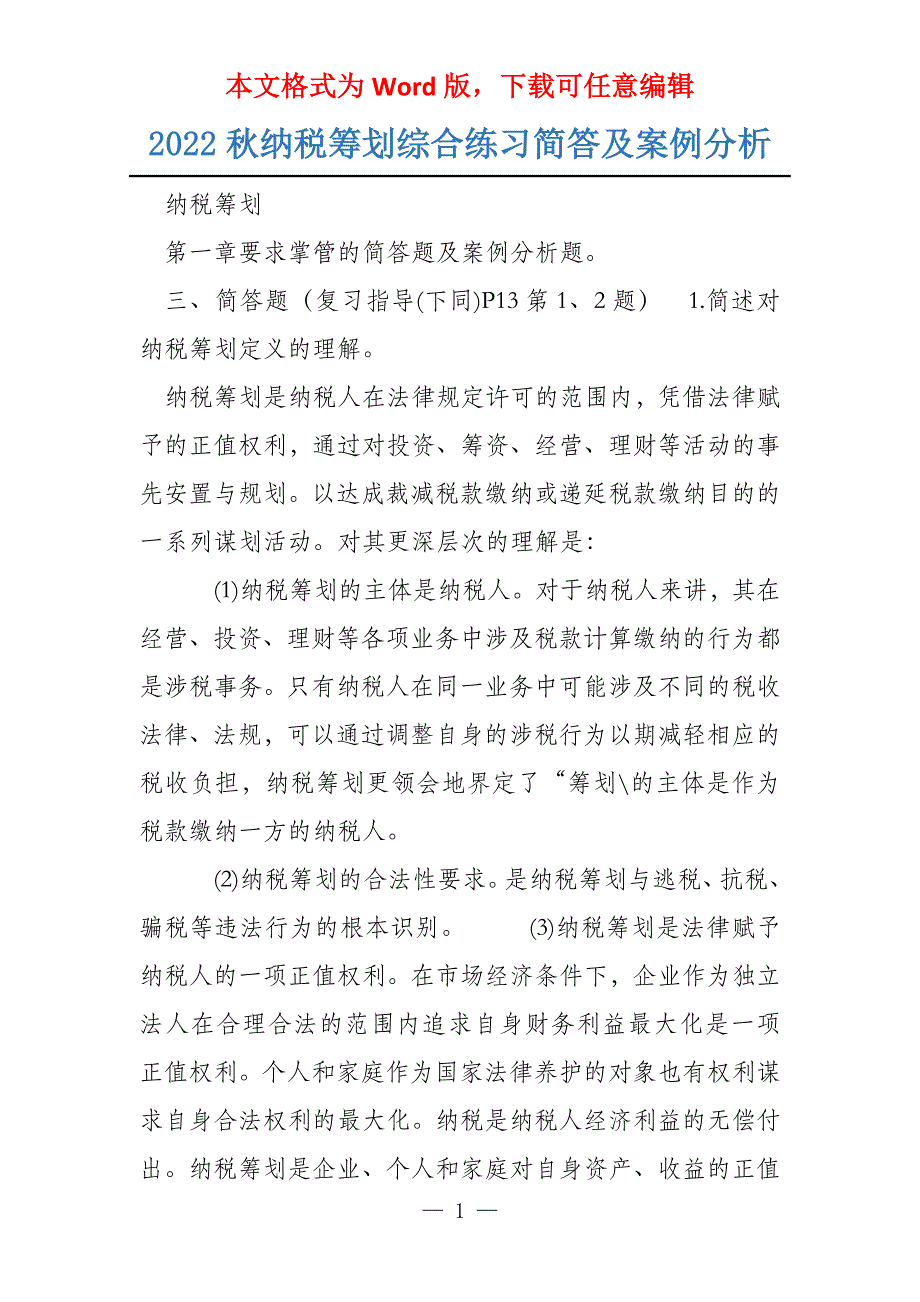 本文格式为 Word 版，下载可任意编辑
2022 秋纳税筹划综合练习简答及案例分析
纳税筹划
第一章要求掌管的简答题及案例分析题。
三、简答题（复习指导(下同)P13 第 1、2 题） 1.简述对
纳税筹划定义的理解。
纳税筹划是纳税人在法律规定许可的范围内，凭借法律赋
予的正值权利，通过对投资、筹资、经营、理财等活动的事
先安置与规划。以达成裁减税款缴纳或递延税款缴纳目的的
一系列谋划活动。对其更深层次的理解是：
⑴纳税筹划的主体是纳税人。对于纳税人来讲，其在
经营、投资、理财等各项业务中涉及税款计算缴纳的行为都
是涉税事务。只有纳税人在同一业务中可能涉及不同的税收
法律、法规，可以通过调整自身的涉税行为以期减轻相应的
税收负担，纳税筹划更领会地界定了“筹划\的主体是作为
税款缴纳一方的纳税人。
⑵纳税筹划的合法性要求。是纳税筹划与逃税、抗税、
骗税等违法行为的根本识别。 ⑶纳税筹划是法律赋予
纳税人的一项正值权利。在市场经济条件下，企业作为独立
法人在合理合法的范围内追求自身财务利益最大化是一项
正值权利。个人和家庭作为国家法律养护的对象也有权利谋
求自身合法权利的最大化。纳税是纳税人经济利益的无偿付
出。纳税筹划是企业、个人和家庭对自身资产、收益的正值
— 1 —